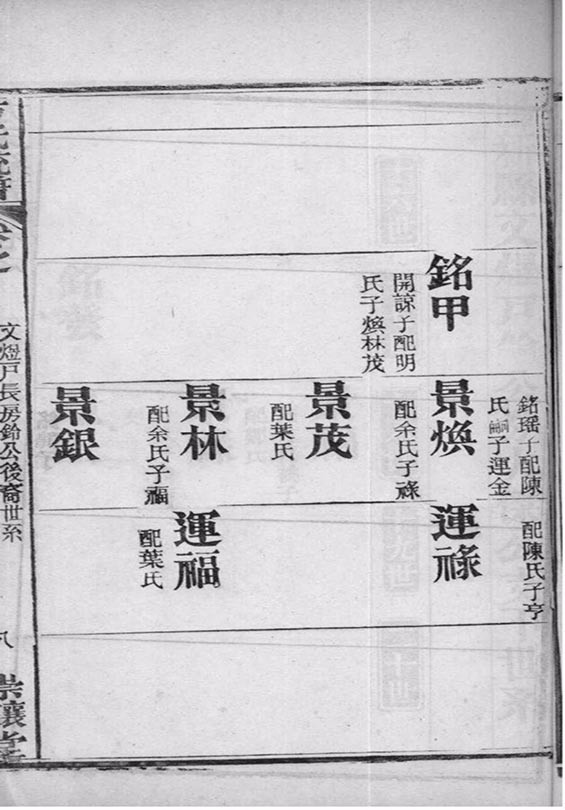 銘甲
開諒子配明
氏子煥林茂
銘瑶子配陳
氏嗣子運金
景煥
配余氏子祿
景茂
配葉氏
景林
配余氏子福
景銀
配陳氏子亨
運祿
運福
配葉氏
文煜戸長房鈴公後裔世系
八